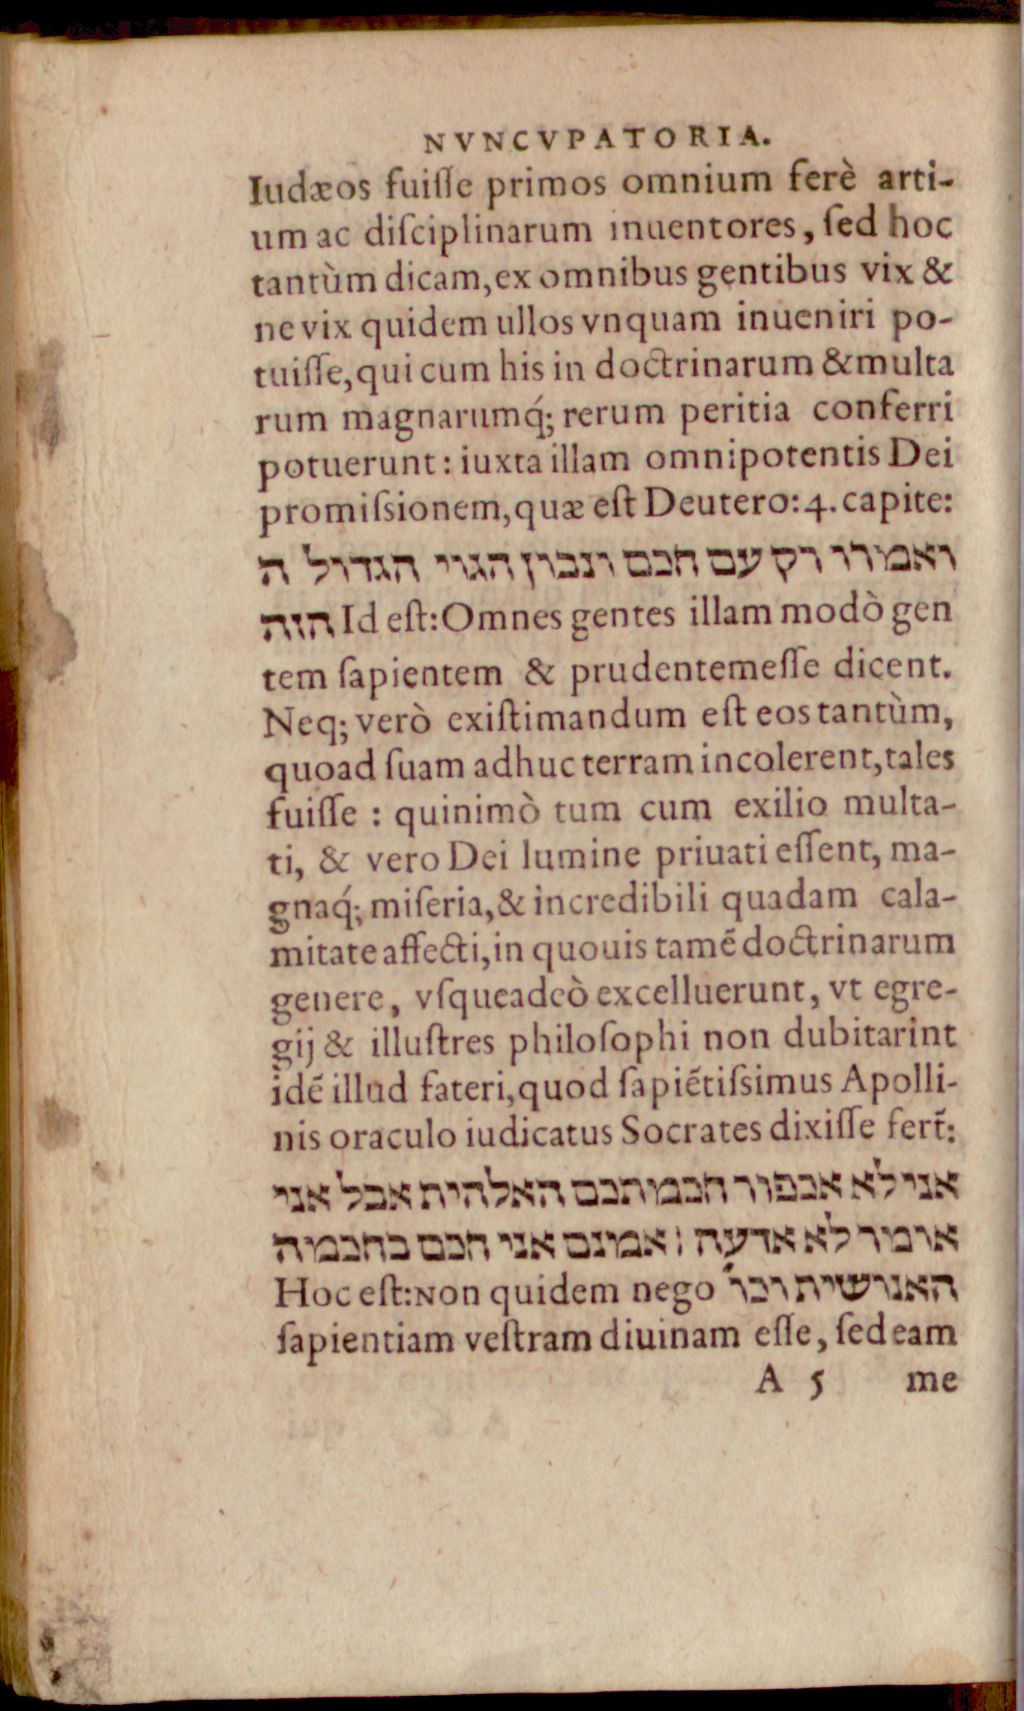 NVNCVPATORIA.
Iudæos fuiſſe primos omnium ferè arti-
um ac diſciplinarum inuentores, ſed hoc
tantùm dicam, ex omnibus gentibus vix &
ne vix quidem ullos vnquam inueniri po-
tuiſſe, qui cum his in doctrinarum & multa
rum magnarumq́; rerum peritia conferri
potuerunt: iuxta illam omnipotentis Dei
promiſsionem, quæ eſt Deutero: 4. capite:
ואמרו רק עם חכם ונבון הגוי הגדול ה
הזה Id eſt: Omnes gentes illam modò gen
tem ſapientem & prudentemeſſe dicent.
Neq; verò exiſtimandum eſt eos tantùm,
quoad ſuam adhuc terram incolerent, tales
fuiſſe : quinimò tum cum exilio multa-
ti, & vero Dei lumine priuati eſſent, ma-
gnaq́; miſeria, & incredibili quadam cala-
mitate affecti, in quouis tamẽ doctrinarum
genere, vſqueadeò excelluerunt, vt egre-
gij & illuſtres philoſophi non dubitarint
idẽ illud fateri, quod ſapiẽtiſsimus Apolli-
nis oraculo iudicatus Socrates dixiſſe fert̃:
אני לא אכפור חכמתכם האלהית אבל אני
אומר לא אדעה ; אמנם אני חכם בחכמה
האנושית וכו' Hoc eſt: Non quidem nego
ſapientiam veſtram diuinam eſſe, ſed eam
A 5 me